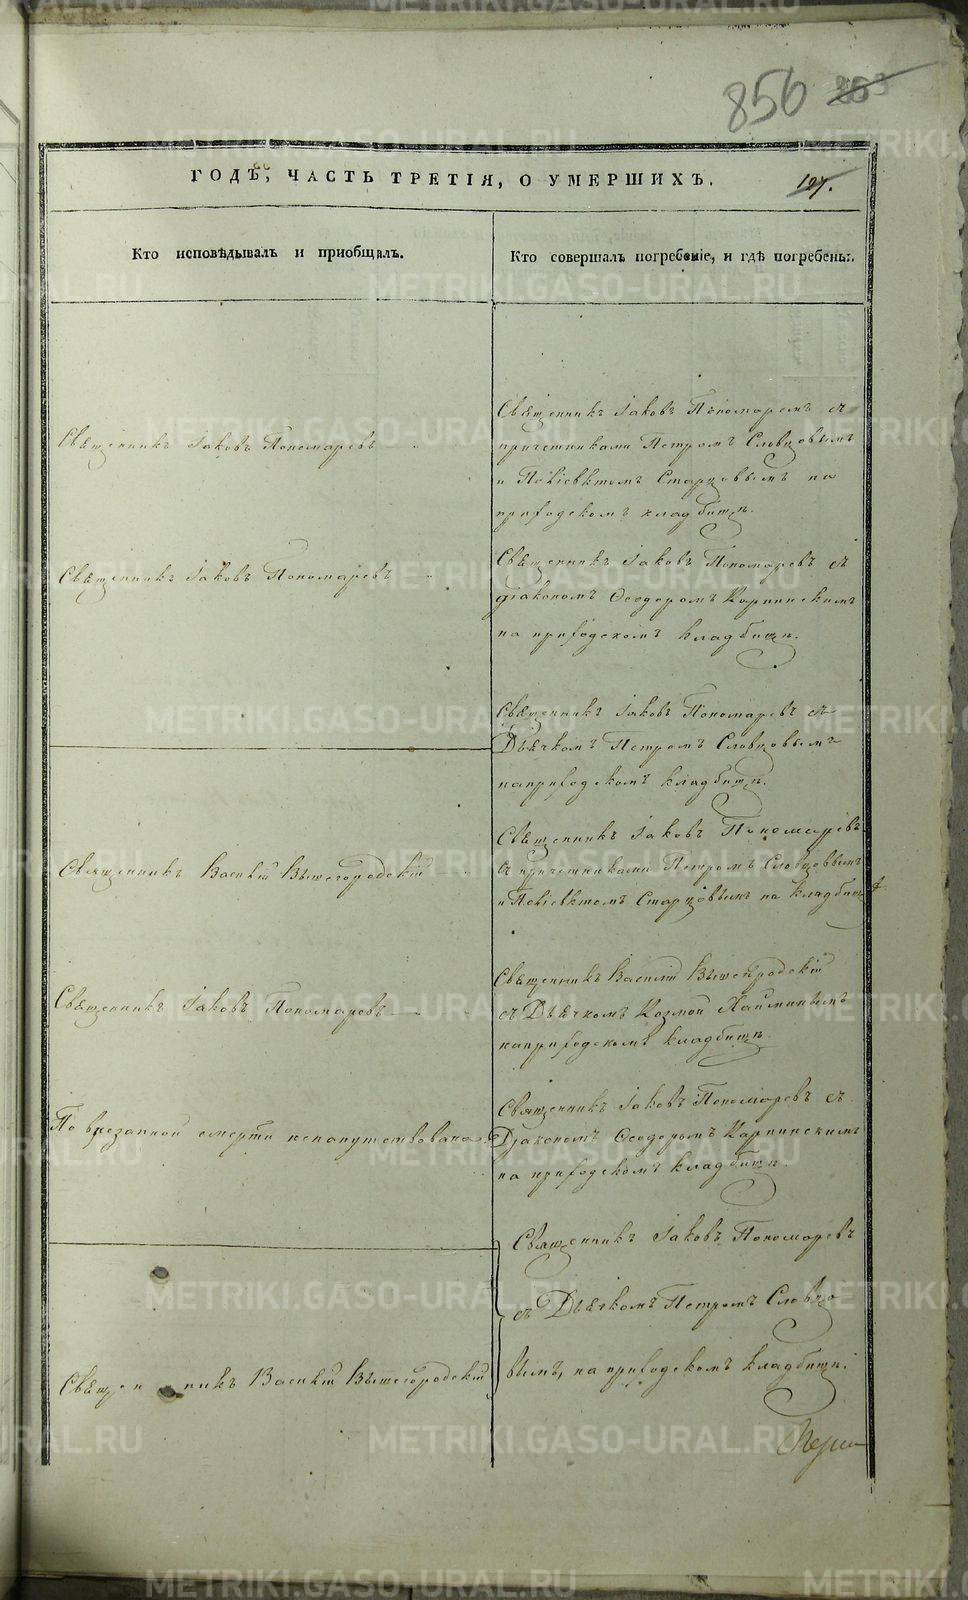 856 253
ГОДЪ, ЧАСТЬ ТРЕТІЯ, О УМЕРШИХЪ.
127.
Кто исповѣдывалъ и пріобщалъ.
Кто совершалъ погребеніе, и гдѣ погребены.
Священникъ Іаковъ Пономаревъ
Священникъ Іаковъ Пономаревъ съ
причетниками Петромъ Словцовымъ
и Поліевктомъ Старцовымъ на
приходскомъ кладбищѣ.
Священникъ Іаковъ Пономаревъ
Священникъ Іаковъ Пономаревъ съ
діакономъ Ѳеодоромъ Карпинскимъ
на приходскомъ кладбищѣ.
Священникъ Іаковъ Пономаревъ съ
Дьячкомъ Петромъ Словцовымъ
на приходскомъ кладбищѣ.
Священникъ Василій Вышегородскій
Священникъ Іаковъ Пономаревъ
съ причетниками Петромъ Словцовымъ
и Поліевктомъ Старцовымъ на кладбищѣ
Священникъ Іаковъ Пономаревъ
Священникъ Василій Вышегородскій
съ Дьячкомъ Козмой
на приходскомъ кладбищѣ
По внезапной смерти ненапутствована
Священникъ Іаковъ Пономаревъ съ
Діакономъ Ѳеодоромъ Карпинскимъ
на приходскомъ кладбищѣ.
Священникъ Василій Вышегородскій
Священникъ Іаковъ Пономаревъ
съ Дьячкомъ Петромъ Словцо
вымъ, на приходскомъ кладбищѣ.
METRIKI.GASO-URAL.RU